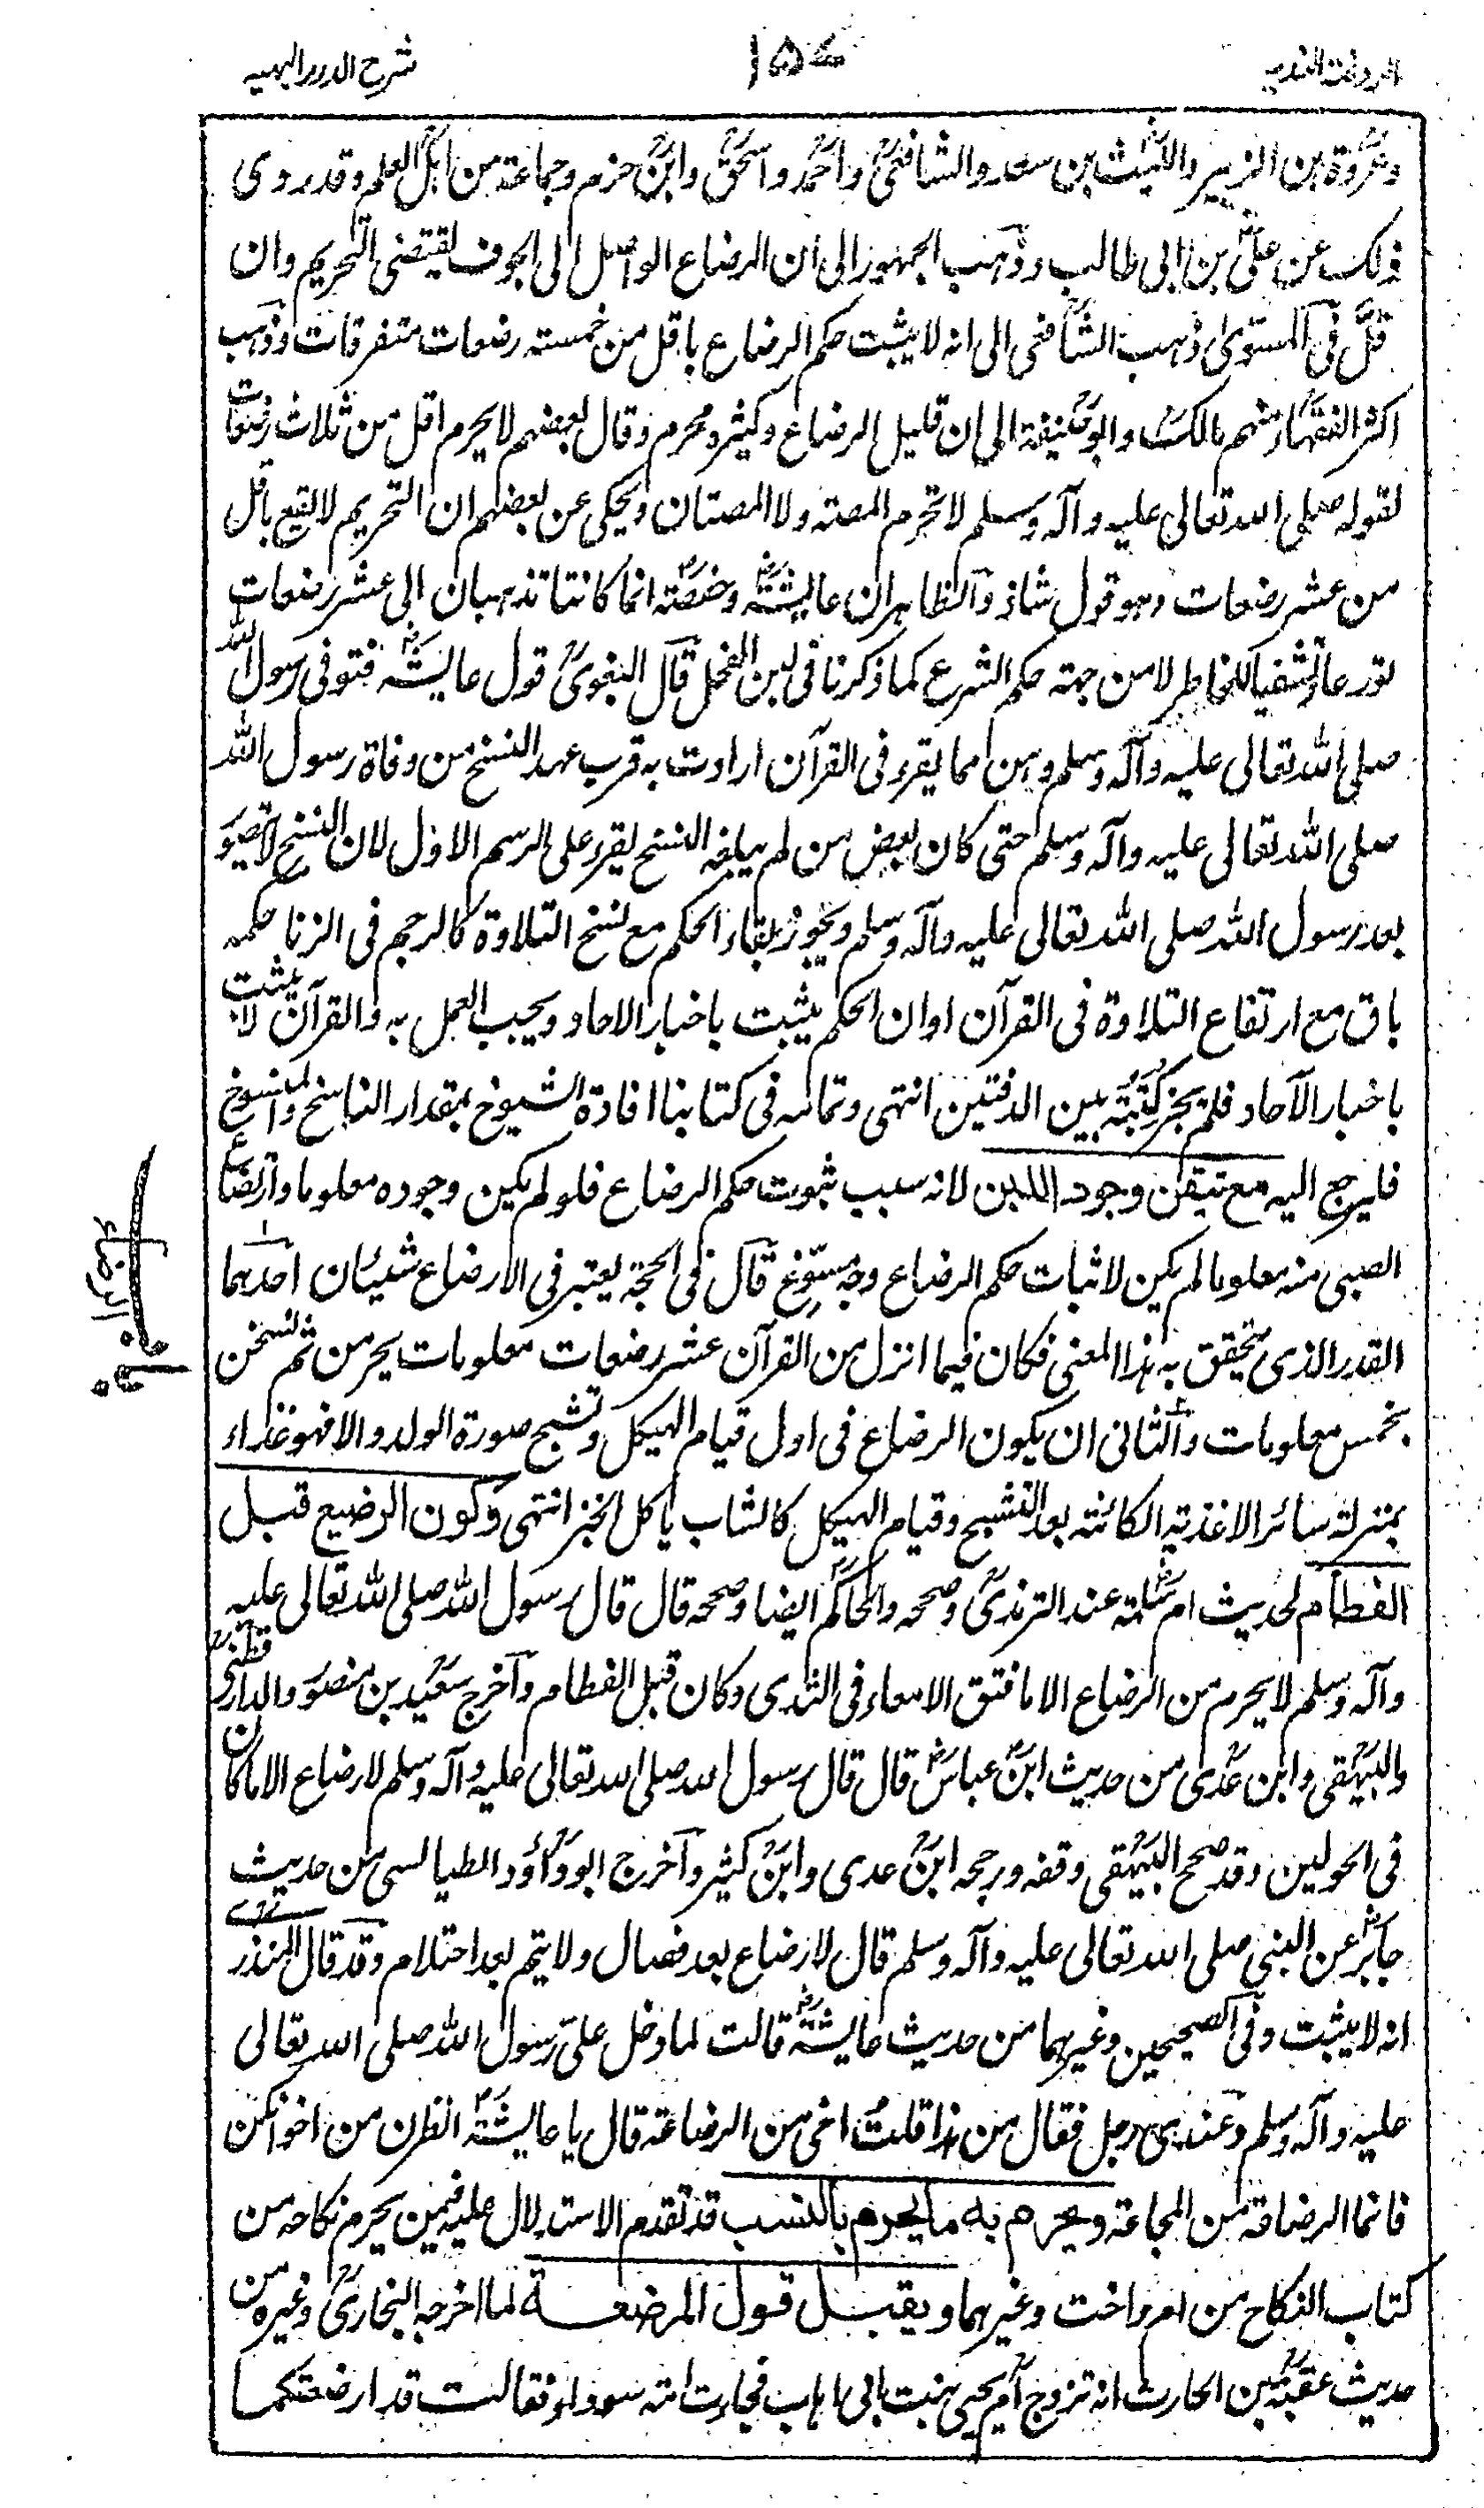 الروضة الندية
١٥٧
شرح الدرر البهيه
وعروة بن الزبير والليث بن سعد والشافعي واحمد واسحق وابن حزم وجماعة من اهل العلم وقد روى
ذلك عن علي بن ابي طالب وذهب الجمهور الى ان الرضاع الواصل الى الجوف يقتضى التحريم وان
قل في المسوى ذهب الشافعى الى انه لا يثبت حكم الرضاع باقل من خمسته رضعات متفرقات وذهب
اكثر الفقهاء منهم مالك وابو حنيفة الى ان قليل الرضاع وكثيره محرم وقال بعضهم لا يحرم اقل من ثلاث رضعات
لقوله صلى الله تعالى عليه وآله وسلم لا تحرم المصته ولا المصتان ويحكى عن بعضهم ان التحريم لا يقع باقل
من عشر رضعات وهو قول شاذ والظاهر ان عايشة وحفصة انما كانتا تذهبان الى عشر رضعات
تورعا وتشفيا للخاطر لا من جهته حكم الشرع كما ذكرنا فى لبن الفحل قال البغوى قول عايشة فتوفى رسول الله
صلى الله تعالى عليه وآله وسلم وهن مما يقرء فى القرآن ارادت به قرب عهد النسخ من وفاة رسول الله
صلى الله تعالى عليه وآله وسلم حتى كان بعض من لم يبلغه النسخ يقرء على الرسم الاول لان النسخ لا يتصور
بعد رسول الله صلى الله تعالى عليه وآله وسلم ويجوز بقاء الحكم مع نسخ التلاوة كالرجم فى الزنا حكمه
باق مع ارتفاع التلاوة فى القرآن او ان الحكم يثبت باخبار الاحاد ويجب العمل به والقرآن لا يثبت
باخبار الآحاد فلم يجز كتبته بين الدفتين انتهى وتمامه فى كتابنا افادة الشيوخ بمقدار الناسخ والمنسوخ
فليرجع اليه مع تيقن وجود اللبن لانه سبب ثبوت حكم الرضاع فلو لم يكن وجوده معلوما وارتضاع
الصبى منه معلوما لم يكن لاثبات حكم الرضاع وجه مسوغ قال فى الحجة يعتبر فى الارضاع شيئان احدهما
القدر الذى يتحقق به هذا المعنى فكان فيما انزل من القرآن عشر رضعات معلومات يحرمن ثم نسخن
بخمس معلومات والثانى ان يكون الرضاع فى اول قيام الهيكل وتشبح صورة الولد والا فهو غذاء
بمنزلة سائر الاغذيته الكائنته بعد التشبح وقيام الهيكل كالشاب ياكل الخبز انتهى وكون الرضيع قبل
الفطام لحديث ام سلمة عند الترمذى وصححه والحاكم ايضا وصححه قال قال رسول الله صلى الله تعالى عليه
وآله وسلم لا يحرم من الرضاع الا ما فتق الامعاء فى الثدى وكان قبل الفطام وآخرج سعيد بن منصور والدارقطنى
والبيهقى وابن عدى من حديث ابن عباس قال قال رسول الله صلى الله تعالى عليه وآله وسلم لا رضاع الا ما كان
فى الحولين وقد صحح البيهقى وقفه ورجحه ابن عدى وابن كثير وآخرج ابو داؤد الطيالسى من حديث
جابر عن النبى صلى الله تعالى عليه وآله وسلم قال لا رضاع بعد فصال ولا يتم بعد احتلام وقد قال المنذرى
انه لا يثبت وفى الصحيحين وغيرهما من حديث عايشة قالت لما دخل على رسول الله صلى الله تعالى
عليه وآله وسلم وعندى رجل فقال من هذا قلت اخى من الرضاعة قال يا عايشة انظرن من اخوانكن
فانما الرضاعة من المجاعة ويحرم به ما يحرم بالنسب قد تقدم الاستدلال عليه فيمن يحرم نكاحه من
كتاب النكاح من ام واخت وغيرهما ويقبل قول المرضعة لما اخرجه البخارى وغيره من
حديث عقبة بن الحارث انه تزوج ام يحيى بنت ابى اهاب فجاءت امته سوداء فقالت قد ارضعتكما